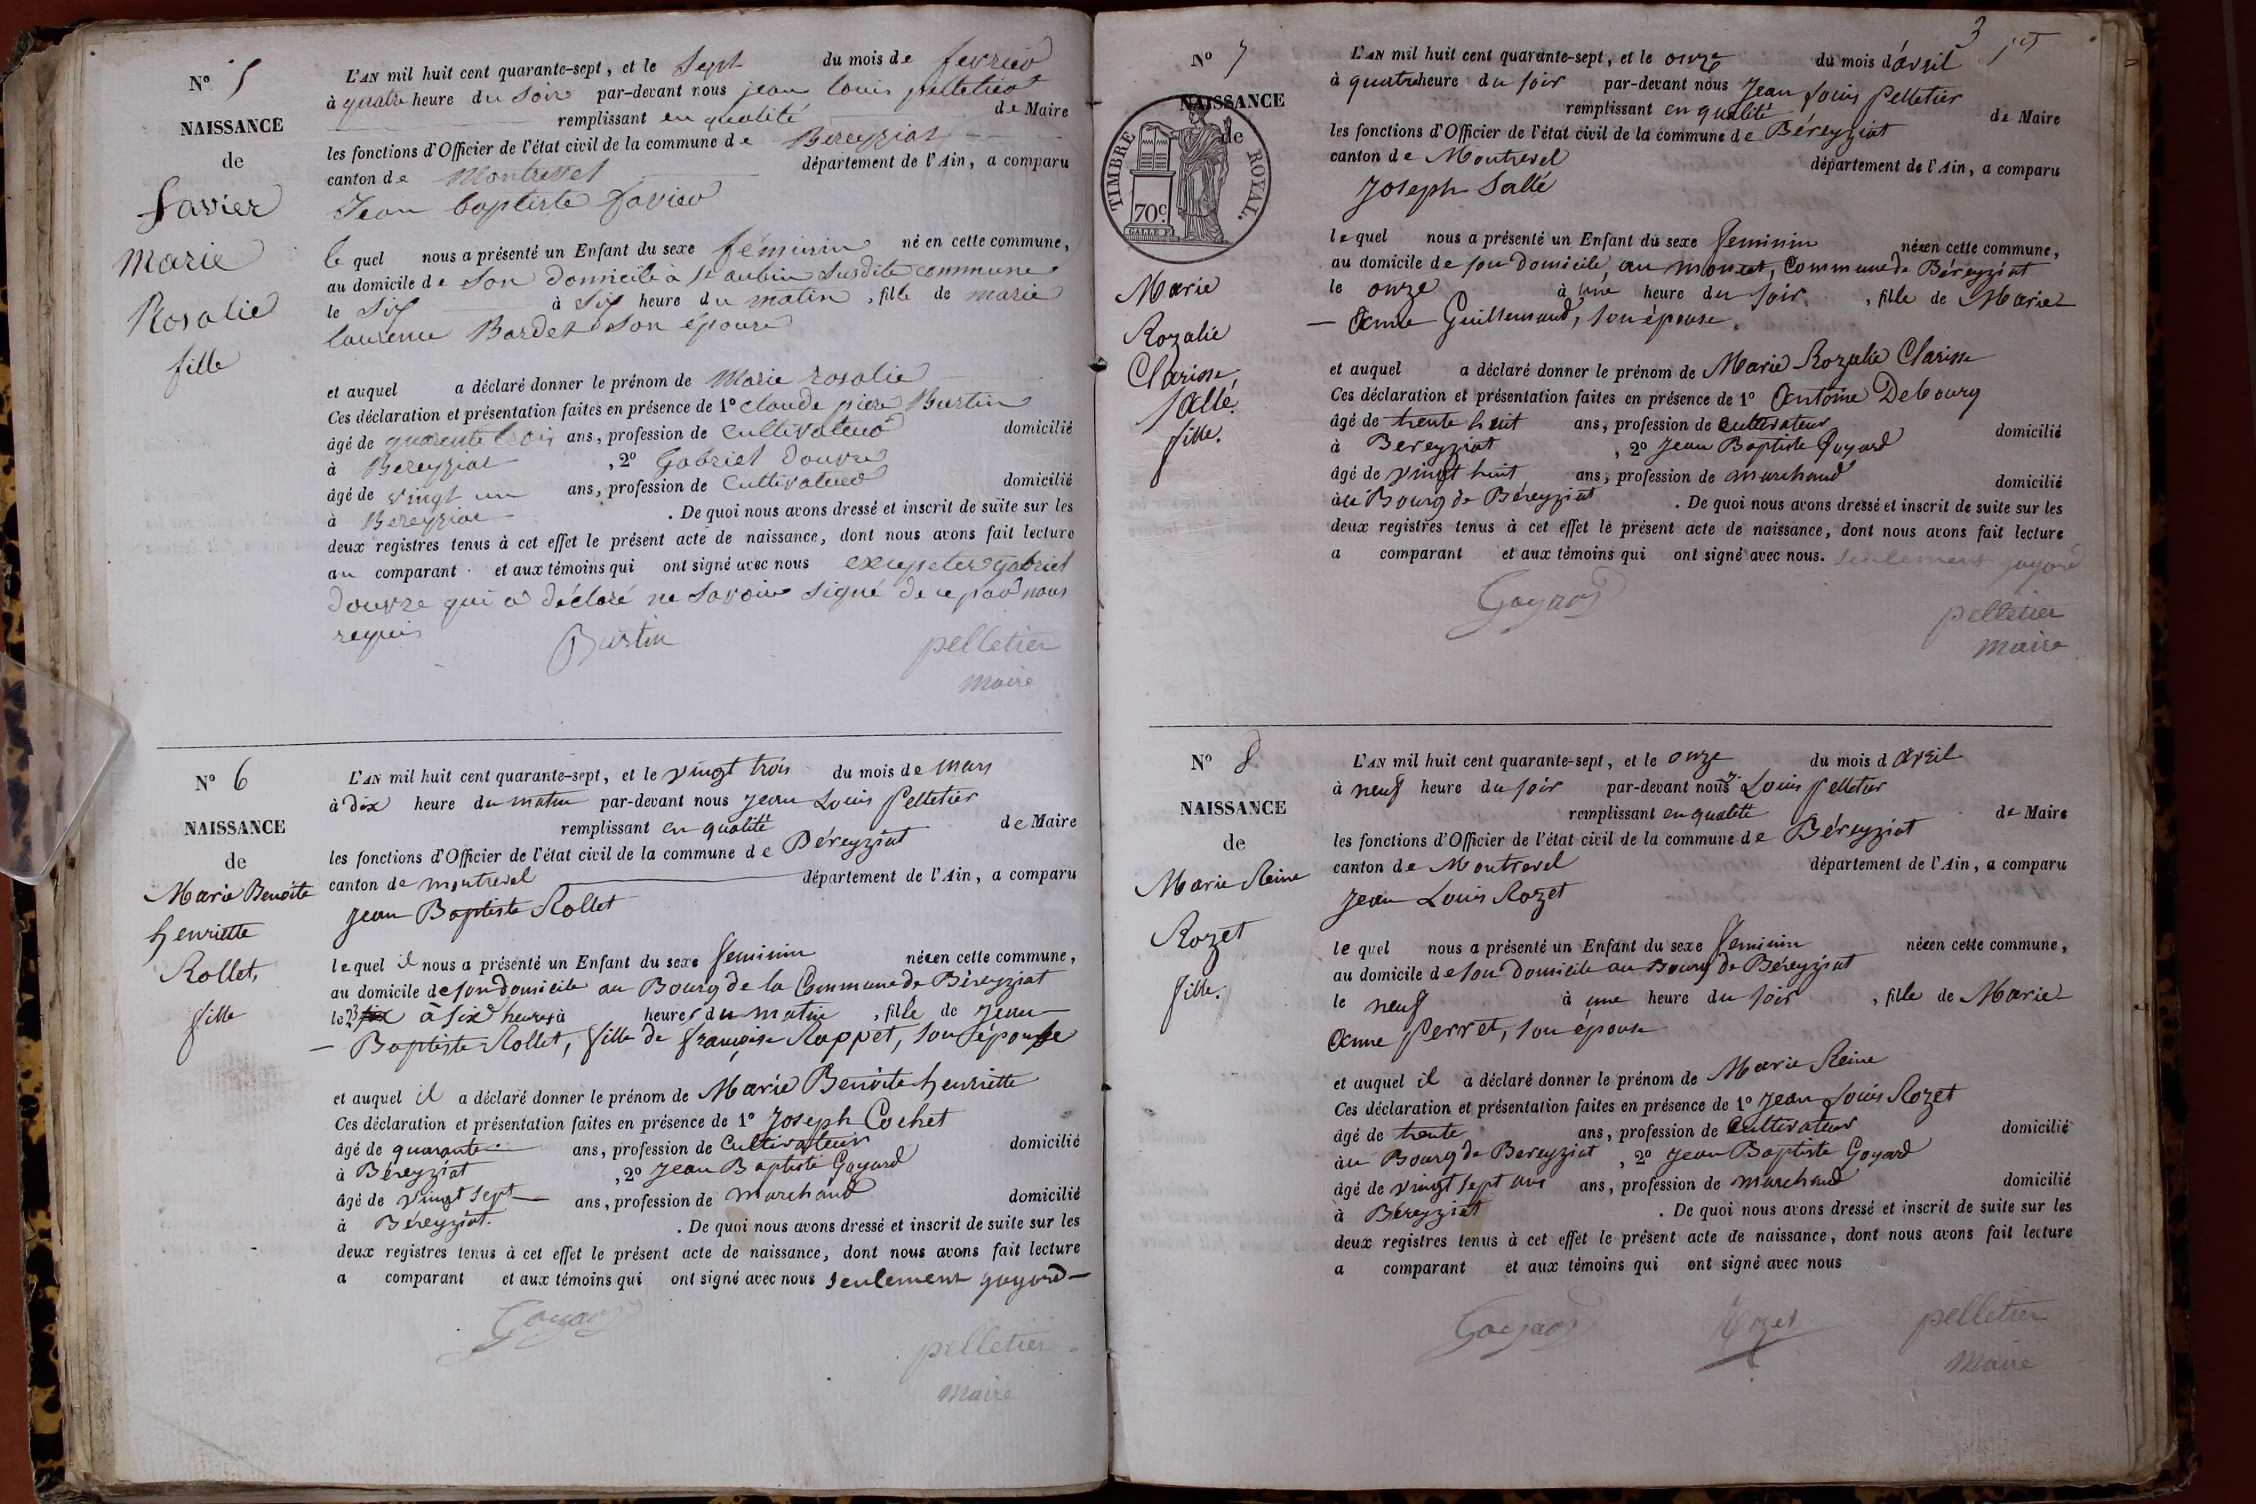 N° 5
NAISSANCE
de
favier
Marie
Rosalie
fille
L'AN mil huit cent quarante-sept, et le Sept du mois de fevrier
à quatre heure du soir par-devant nous jean louis pelletier
remplissant en qualité de Maire
les fonctions d'Officier de l'état civil de la commune de Bereyziat
canton de Montrevel département de l'Ain, a comparu
Jean baptiste favier
le quel nous a présenté un Enfant du sexe féminin né en cette commune,
au domicile de son domicile à st aubin susdite commune
le six à six heure du matin, fille de marie
laurence Bardet son épouse
et auquel a déclaré donner le prénom de Marie rosalie
Ces déclaration et présentation faites en présence de 1° claude piere Burtin
âgé de quarente trois ans, profession de cultivateur domicilié
à Bereyziat, 2° Gabriel douvre
âgé de vingt un ans, profession de cultivateur domicilié
à Bereyziat. De quoi nous avons dressé et inscrit de suite sur les
deux registres tenus à cet effet le présent acte de naissance, dont nous avons fait lecture
au comparant et aux témoins qui ont signé avec nous gabriel
douvre qui a déclaré ne savoir signé de ce par nous
requis
Burtin pelletier
maire
N° 6
NAISSANCE
de
Marie Benoite
henriette
Rollet,
fille
L'AN mil huit cent quarante-sept, et le vingt trois du mois de mars
à dix heure du matin par-devant nous jean Louis Pelletier
remplissant en qualité de Maire
les fonctions d'Officier de l'état civil de la commune de Béreyziat
canton de montrevel département de l'Ain, a comparu
jean Baptiste Rollet
lequel il nous a présenté un Enfant du sexe feminin née en cette commune,
au domicile de son domicile au Bourg de la Commune de Béreyziat
le 23 à six heures à heures du matin, fille de jean
— Baptiste Rollet, fille de françoise Rappet, son épouse
et auquel il a déclaré donner le prénom de Marie Benoite henriette
Ces déclaration et présentation faites en présence de 1° Joseph Cochet
âgé de quarante ans, profession de Cultivateur domicilié
à Béreyziat, 2° jean Baptiste Goyard
âgé de vingt sept ans, profession de marchand domicilié
à Béreyziat. . De quoi nous avons dressé et inscrit de suite sur les
deux registres tenus à cet effet le présent acte de naissance, dont nous avons fait lecture
a comparant et aux témoins qui ont signé avec nous seulement goyard —
Goyard
pelletier
maire
3
N° 7
NAISSANCE
de
TIMBRE ROYAL.
70c.
Marie
Rozalie
Clarisse
Sallé.
fille.
L'AN mil huit cent quarante-sept, et le onze du mois d'avril
à quatre heure du soir par-devant nous Jean Louis Pelletier
remplissant en qualité de Maire
les fonctions d'Officier de l'état civil de la commune de Béreyziat
canton de Montrevel département de l'Ain, a comparu
Joseph Sallé
lequel nous a présenté un Enfant du sexe feminin née en cette commune,
au domicile de son domicile, au monet, Commune de Béreyziat
le onze à une heure du soir, fille de Marie
— Anne Guillemaud, son épouse.
et auquel a déclaré donner le prénom de Marie Rozalie Clarisse
Ces déclaration et présentation faites en présence de 1° Antoine Debourg
âgé de trente huit ans, profession de cultivateur domicilié
à Bereyziat, 2° Jean Baptiste Goyard
âgé de vingt huit ans, profession de marchand domicilié
à au Bourg de Béreyziat. De quoi nous avons dressé et inscrit de suite sur les
deux registres tenus à cet effet le présent acte de naissance, dont nous avons fait lecture
a comparant et aux témoins qui ont signé avec nous. seulement goyard
Goyard pelletier
maire
N° 8
NAISSANCE
de
Marie Reine
Rozet
fille.
L'AN mil huit cent quarante-sept, et le onze du mois d avril
à neuf heure du soir par-devant nous J. Louis Pelletier
remplissant en qualité de Maire
les fonctions d'Officier de l'état civil de la commune de Béreyziat
canton de Montrevel département de l'Ain, a comparu
Jean Louis Rozet
lequel nous a présenté un Enfant du sexe feminin née en cette commune,
au domicile de son domicile au Bourg de Béreyziat
le neuf à une heure du soir, fille de Marie
Anne Perret, son épouse
et auquel il a déclaré donner le prénom de Marie Reine
Ces déclaration et présentation faites en présence de 1° Jean Louis Rozet
âgé de trente ans, profession de cultivateur domicilié
à au Bourg de Bereyziat, 2° Jean Baptiste Goyard
âgé de vingt sept ans ans, profession de marchand domicilié
à Béreyziat. De quoi nous avons dressé et inscrit de suite sur les
deux registres tenus à cet effet le présent acte de naissance, dont nous avons fait lecture
a comparant et aux témoins qui ont signé avec nous
Goyard Rozet pelletier
Maire